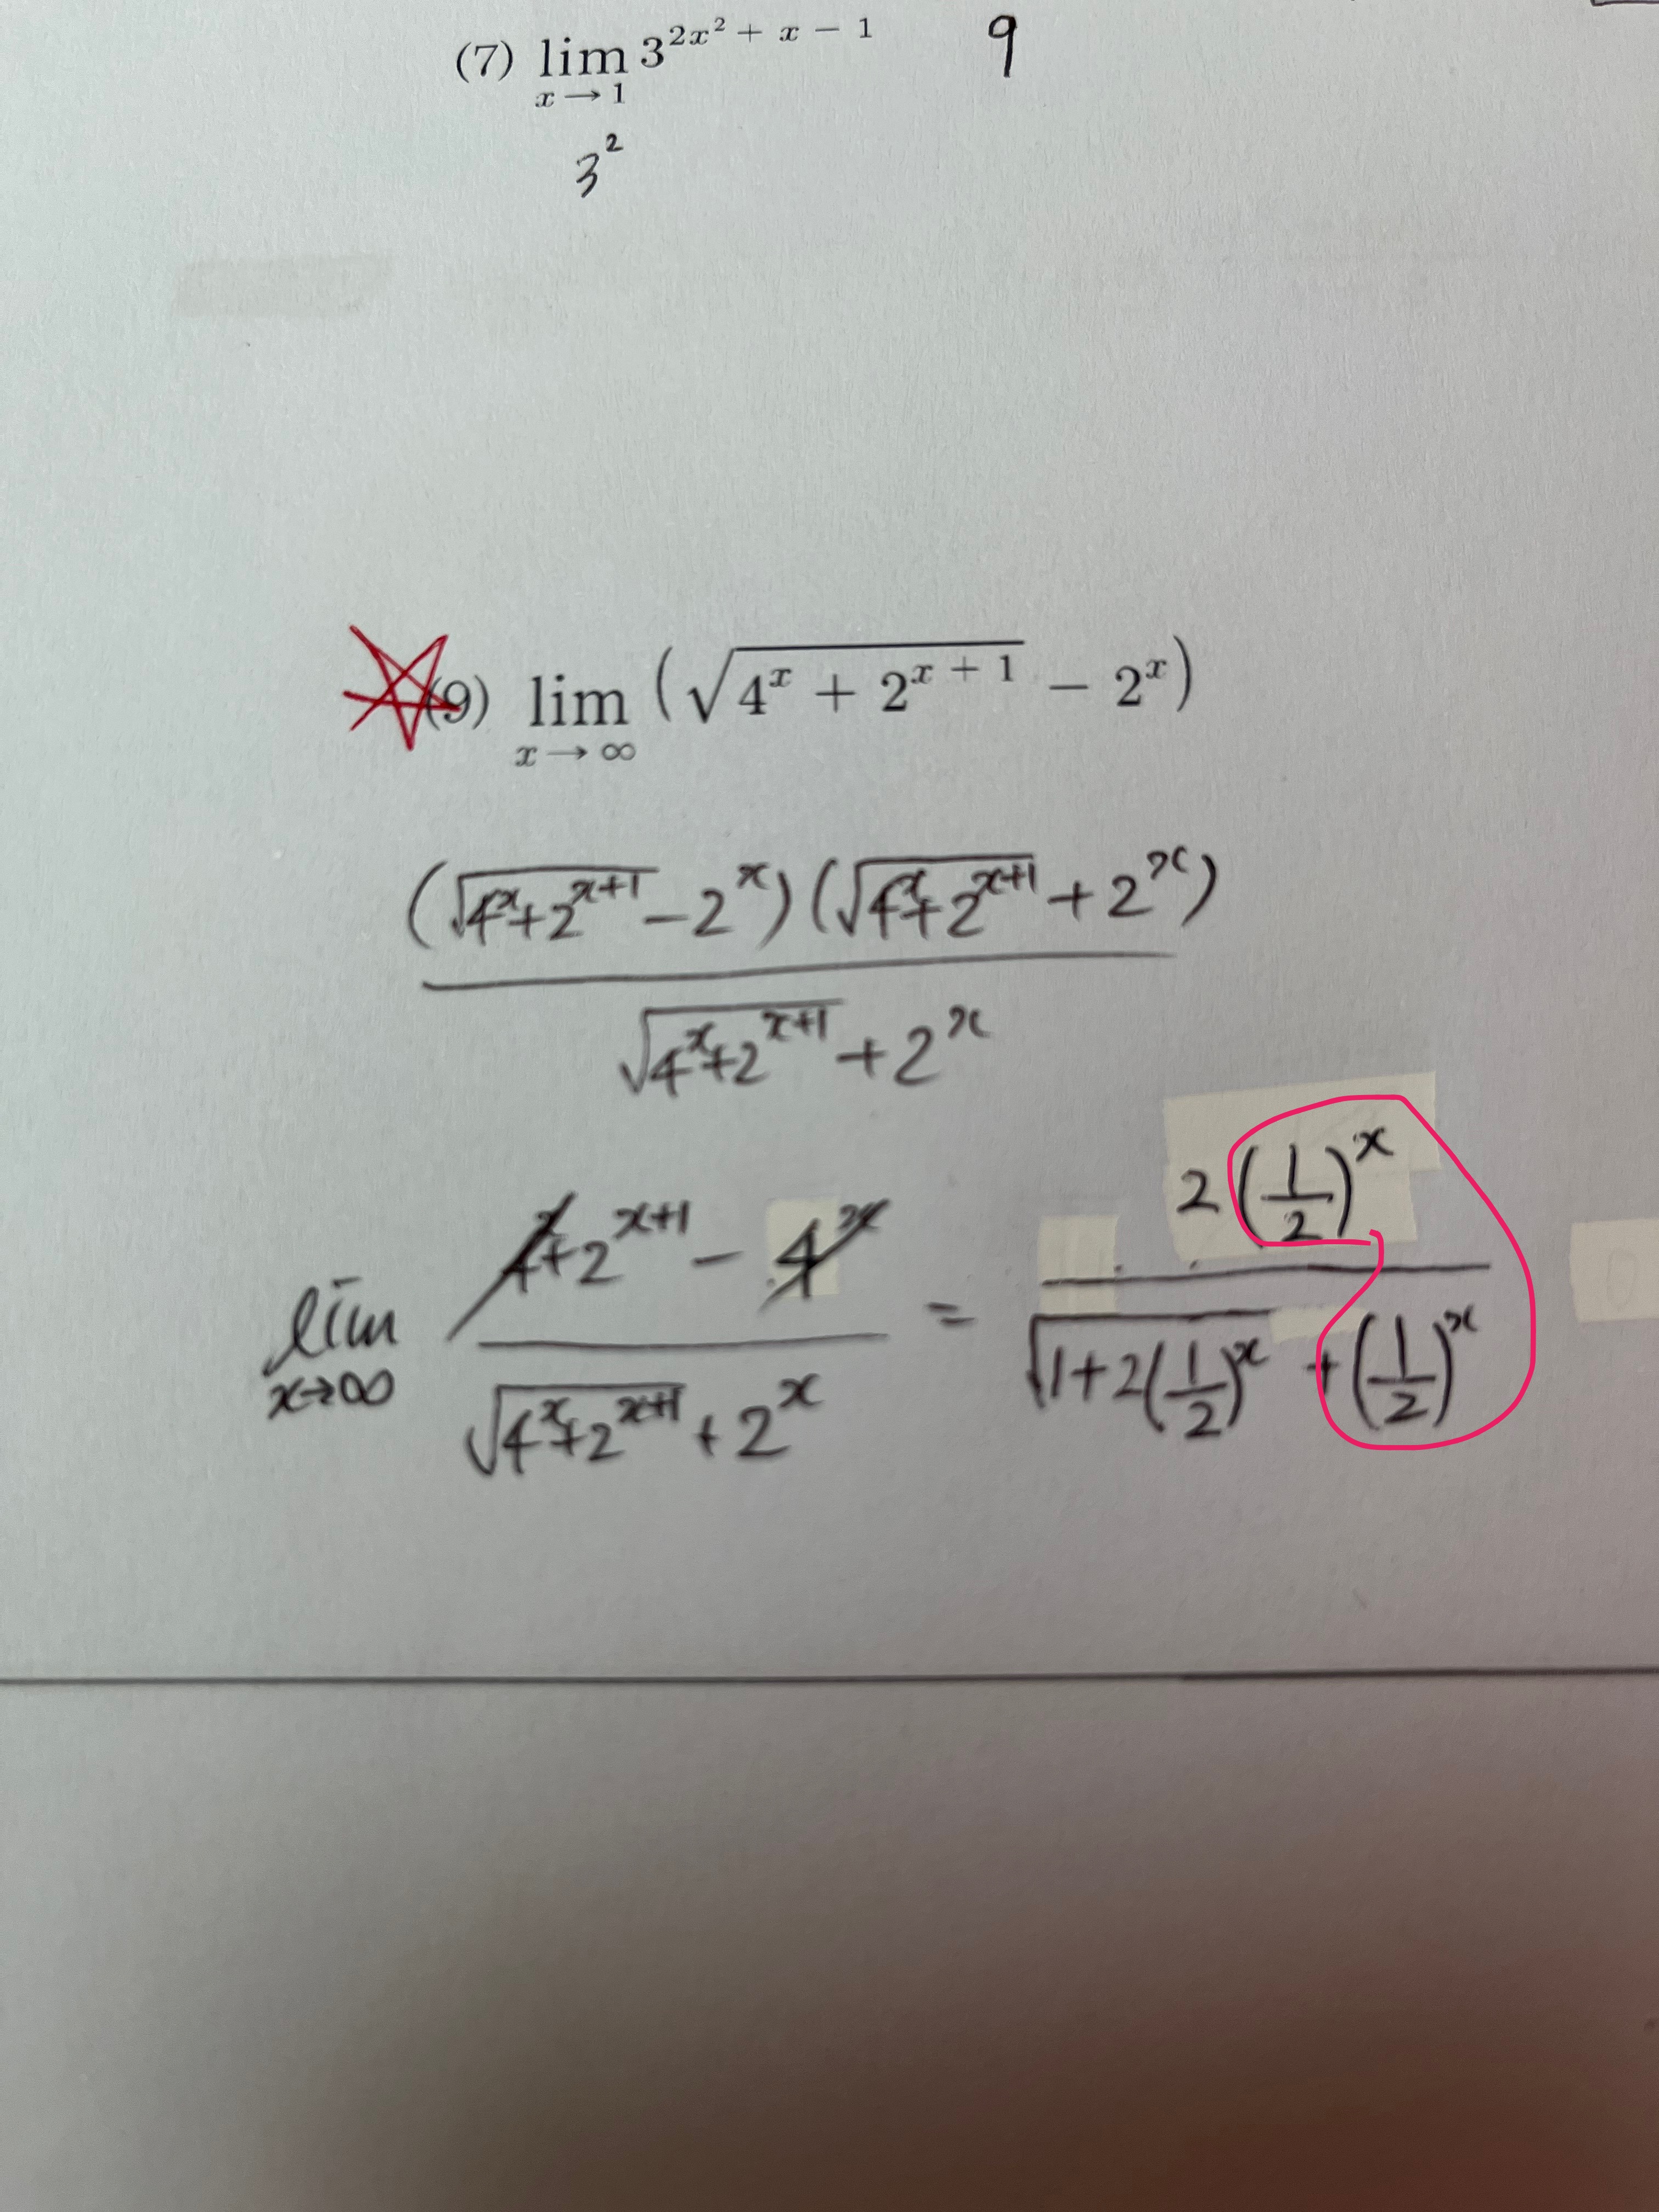 (7) lim x→1 3^{2x² + x − 1} 9
3²
(9) lim x→∞ (√(4^x + 2^{x + 1}) − 2^x)
(√(4^x+2^{x+1}) − 2^x)(√(4^x+2^{x+1}) + 2^x)
√(4^x+2^{x+1}) + 2^x
lim x→∞ (4^x+2^{x+1} − 4^x)/(√(4^x+2^{x+1}) + 2^x) = 2(1/2)^x/(√(1+2(1/2)^x) + (1/2)^x)